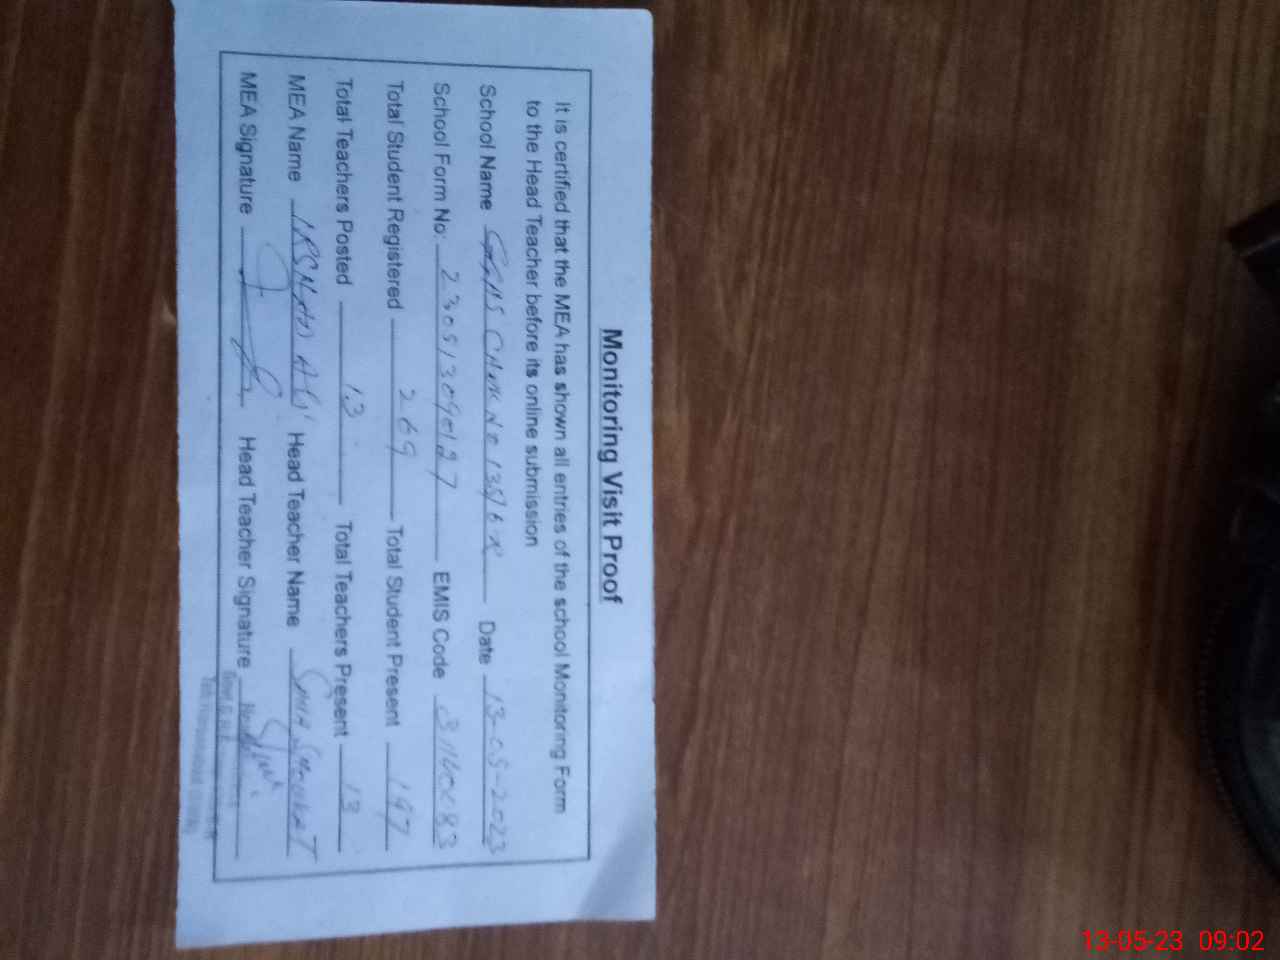 Monitoring Visit Proof
It is certified that the MEA has shown all entries of the school Monitoring Form
to the Head Teacher before its online submission
School Name CHAK NO 135/6R Date 13-05-2023
School Form No: 230513090127 EMIS Code
Total Student Registered 269 Total Student Present 197
Total Teachers Posted 13 Total Teachers Present 13
MEA Name IRSHAD ALI Head Teacher Name SHOUKAT
MEA Signature Head Teacher Signature
13-05-23 09:02